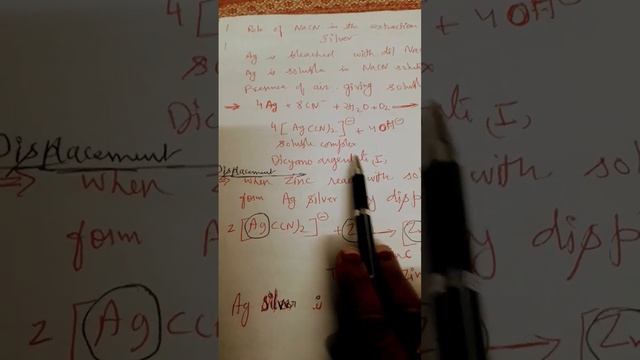 1 Role of NaCN in the extraction
Silver
Ag is bleached with dil Na
Ag is soluble in NaCN solution
Presence of air giving soluble
→ 4Ag + 8CN⁻ + 2H₂O + O₂ →
4[Ag(CN)₂]⊖ + 4OH⊖
soluble complex
Dicyano argent I,
Displacement
⇒ when Zinc reacts with so
form Ag silver by disp
2[Ag(CN)₂]⊖ + Z → [Z
Ag silver is